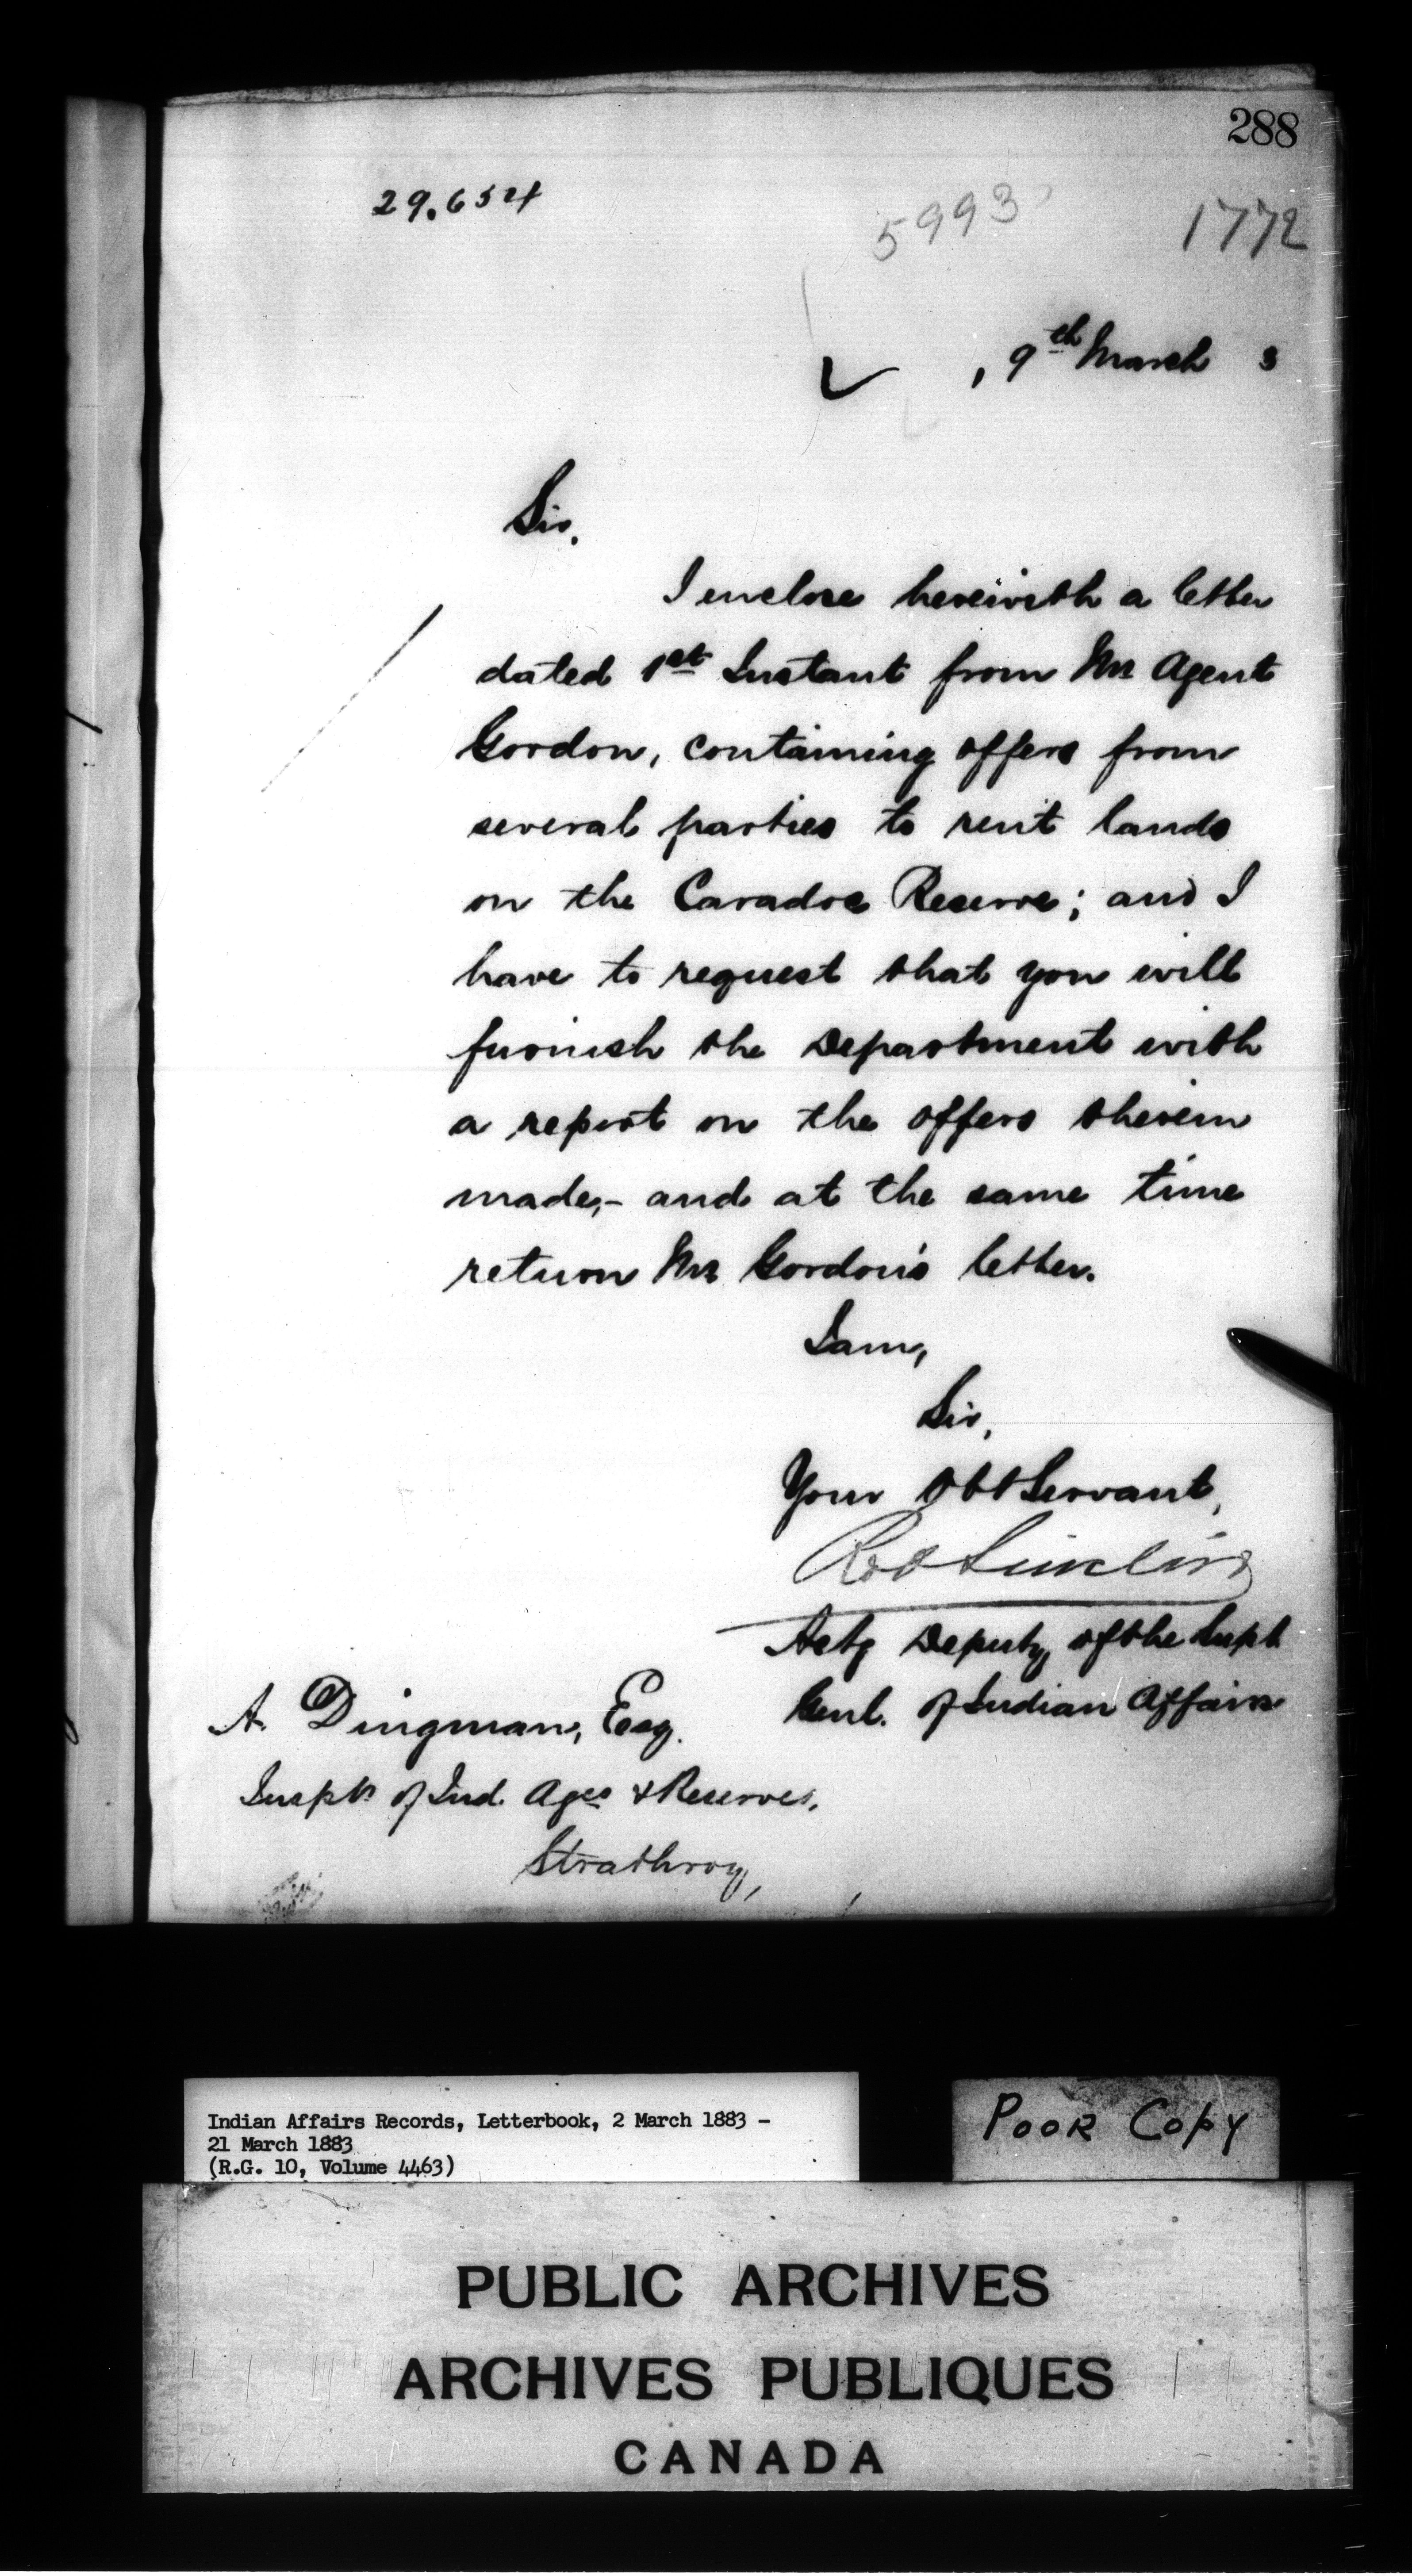 288
29.654
5993
1772
, 9th March 3
Sir,
I enclose herewith a letter
dated 1st Instant from Mr Agent
Gordon, containing offers from
several parties to rent lands
on the Caradoc Reserve; and I
have to request that you will
furnish the Department with
a report on the offers therein
made,- and at the same time
return Mr Gordon's letter.
I am,
Sir,
Your Obt Servant,
Rob Sinclair
Actg Deputy of the Supt
Genl. of Indian Affairs
A. Dingman, Esq.
Inspr of Ind. Ages & Reserves,
Strathroy,
Indian Affairs Records, Letterbook, 2 March 1883 -
21 March 1883
(R.G. 10, Volume 4463)
POOR COPY
PUBLIC ARCHIVES
ARCHIVES PUBLIQUES
CANADA